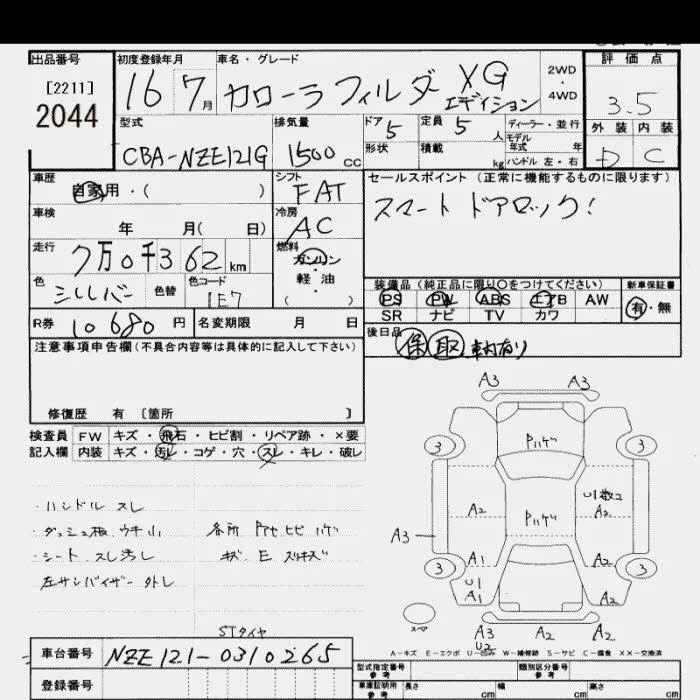 出品番号
[2211]
2044
初度登録年月
16 7月
車名・グレード
カローラフィルダー XG
エディション
2WD
・
4WD
評価点
3.5
外装 内装
D C
型式
CBA-NZE121G
排気量
1500cc
ドア 5
形状
定員 5人
積載 kg
ディーラー・並行
モデル
年式 年
ハンドル 左・右
車歴
自家用・( )
シフト
FAT
セールスポイント (正常に機能するものに限ります)
スマートドアロック!
車検
年 月( 日)
冷房
AC
走行
7万0千362km
燃料
ガソリン
・
軽油
・
色
シルバー
色替
色コード
1E7
装備品(純正品に限り○をつけてください)
PS PW ABS エアB AW
SR ナビ TV カワ
新車保証書
有・無
R券 10680円
名変期限 月 日
後日品
保 取 車内有り
注意事項申告欄(不具合内容等は具体的に記入して下さい)
修復歴 有 [箇所 ]
検査員
記入欄
FW キズ・飛石・ヒビ割・リペア跡・×要
内装 キズ・汚レ・コゲ・穴・スレ・キレ・破レ
・ハンドル スレ
・ダッシュ板 ウキ小
・シート スレ汚レ
左サンバイザー外レ
各所 ヒビ ハゲ
キズ E スリキズ
STタイヤ
A3 A3
3 Pハゲ 3
A2 Pハゲ U1数コ
A2
A3
A1 A2
3 U1 3
A1 A2
スペア
A3
U2
A2 A2
A-キズ E-エクボ U-凹み W-補修跡 S-サビ C-腐食 XX-交換済
車台番号 NZE121-0310265
登録番号
型式指定番号
参考
類別区分番号
参考
車庫証明用
参考
長さ cm
幅 cm
高さ cm